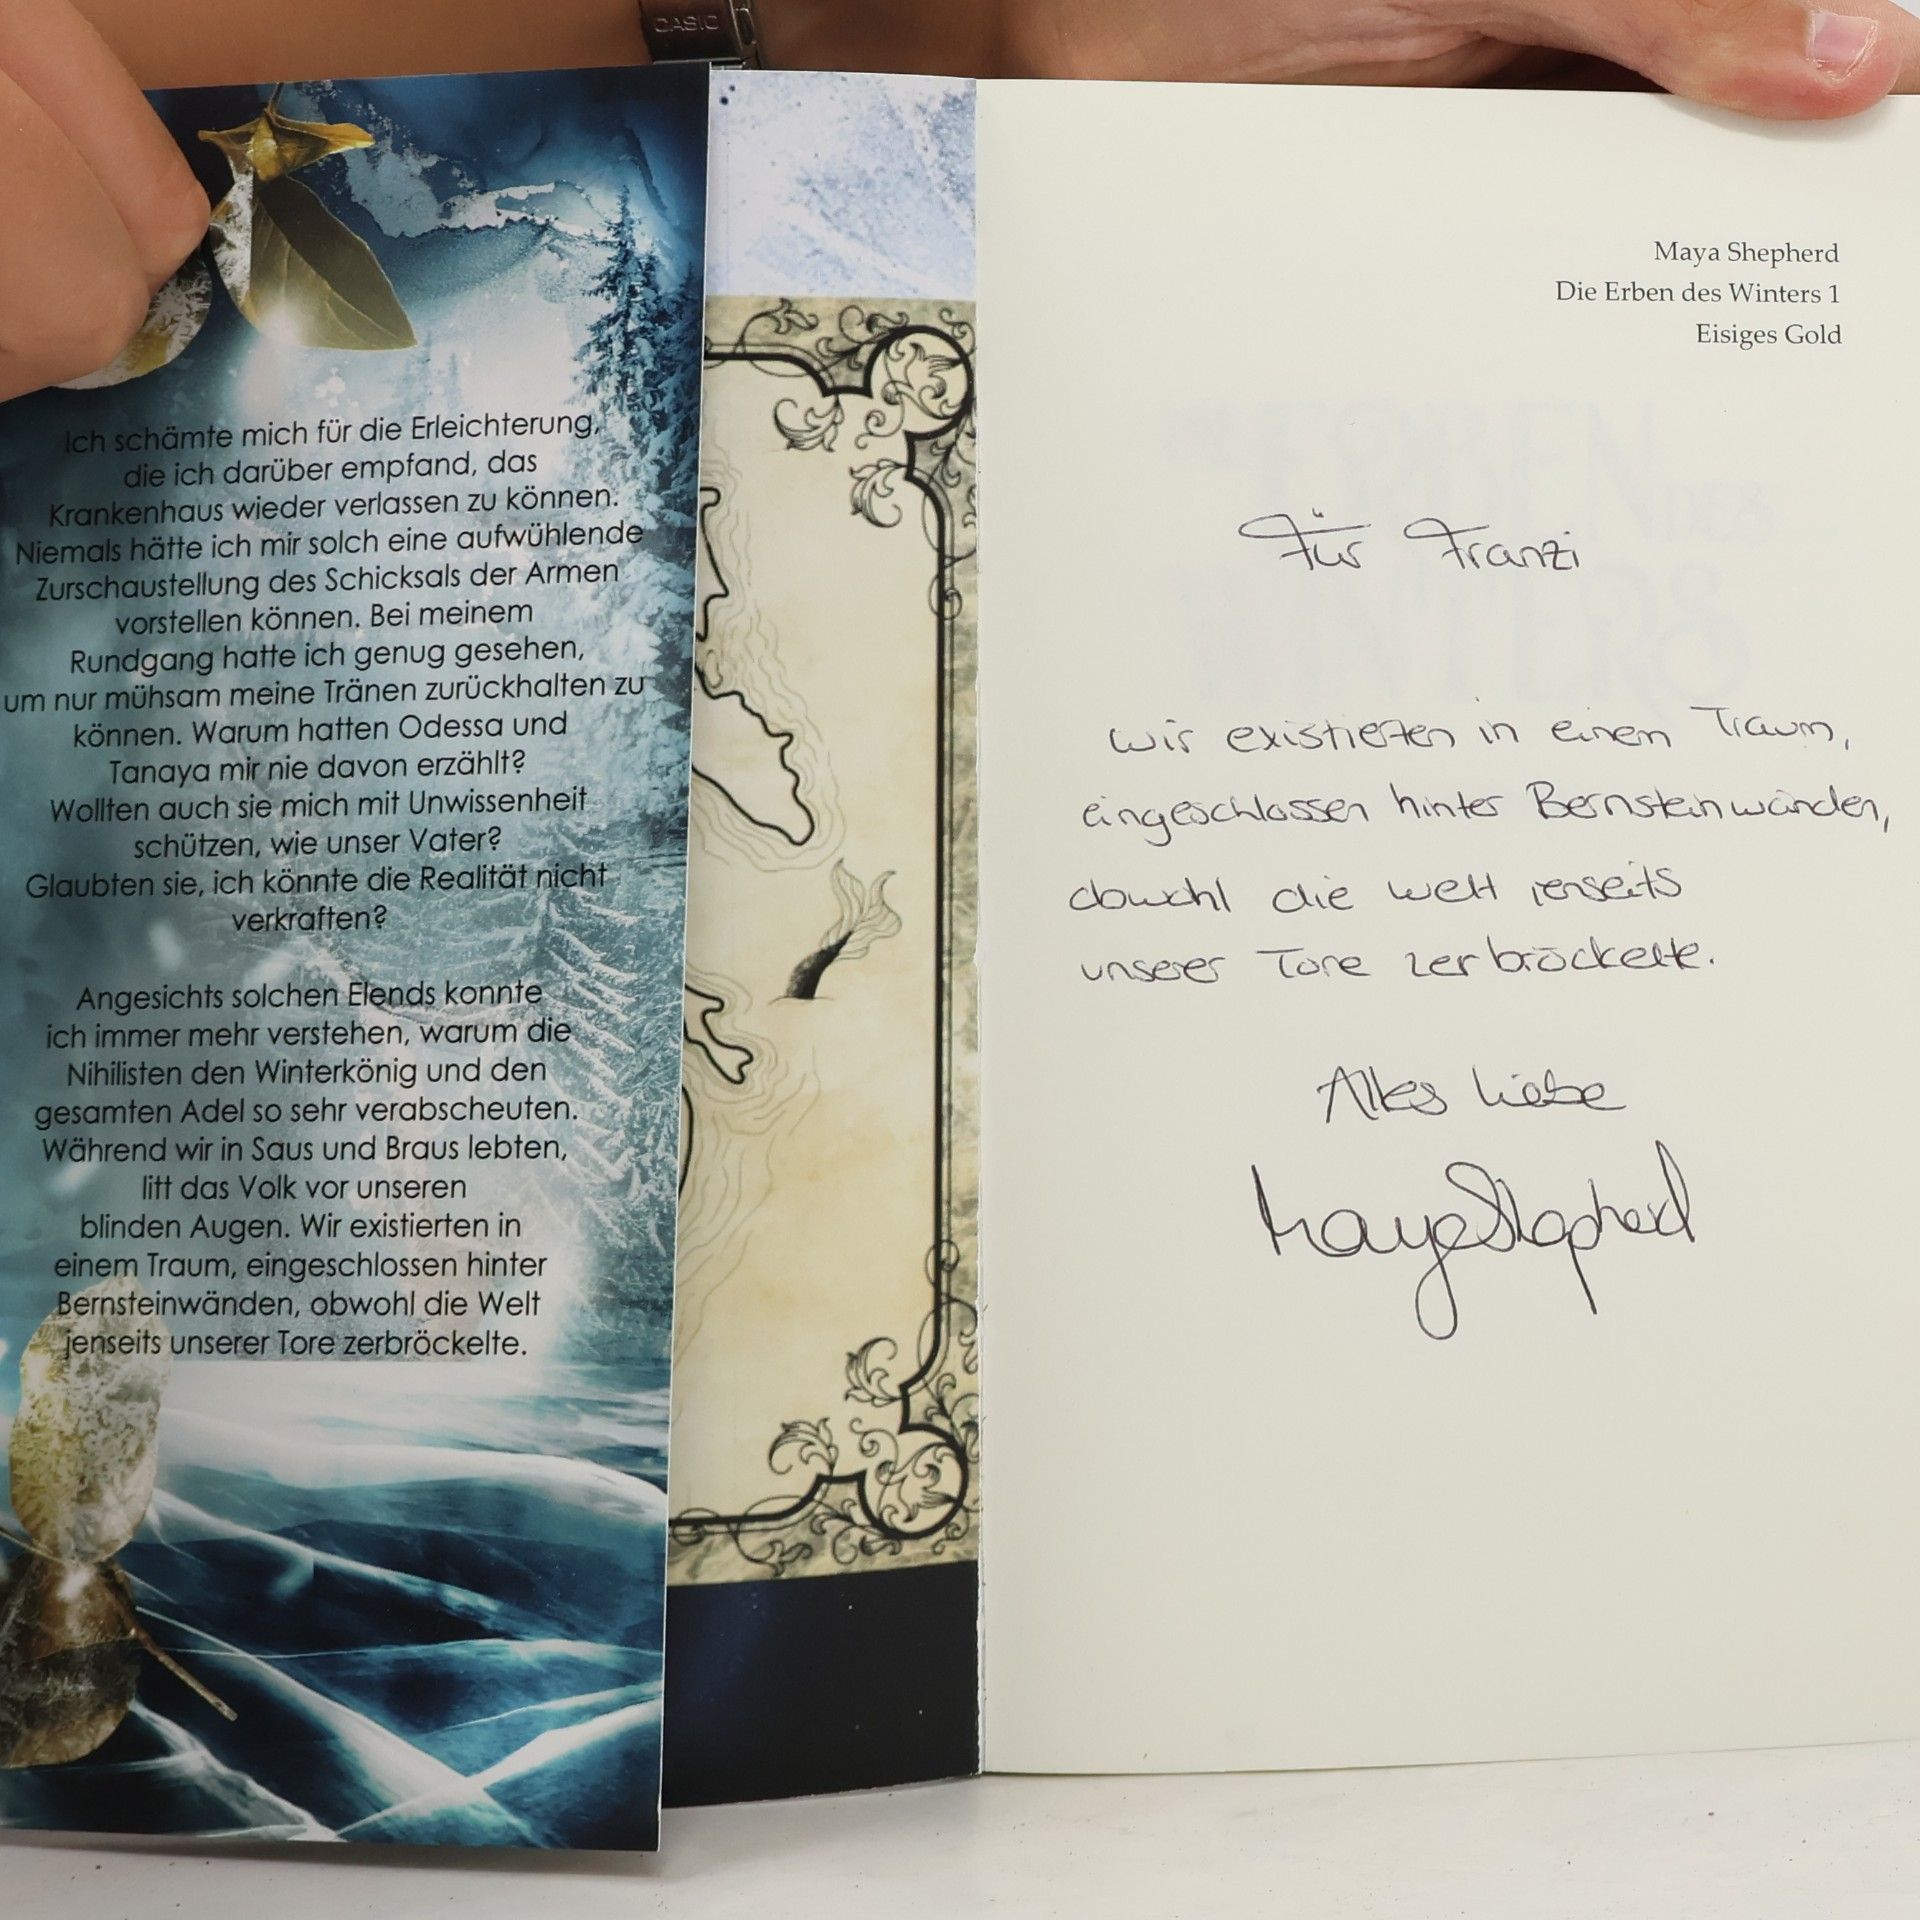 CASIO
Ich schämte mich für die Erleichterung,
die ich darüber empfand, das
Krankenhaus wieder verlassen zu können.
Niemals hätte ich mir solch eine aufwühlende
Zurschaustellung des Schicksals der Armen
vorstellen können. Bei meinem
Rundgang hatte ich genug gesehen,
um nur mühsam meine Tränen zurückhalten zu
können. Warum hatten Odessa und
Tanaya mir nie davon erzählt?
Wollten auch sie mich mit Unwissenheit
schützen, wie unser Vater?
Glaubten sie, ich könnte die Realität nicht
verkraften?
Angesichts solchen Elends konnte
ich immer mehr verstehen, warum die
Nihilisten den Winterkönig und den
gesamten Adel so sehr verabscheuten.
Während wir in Saus und Braus lebten,
litt das Volk vor unseren
blinden Augen. Wir existierten in
einem Traum, eingeschlossen hinter
Bernsteinwänden, obwohl die Welt
jenseits unserer Tore zerbröckelte.
Maya Shepherd
Die Erben des Winters 1
Eisiges Gold
Für Franzi
Wir existierten in einem Traum,
eingeschlossen hinter Bernsteinwänden,
obwohl die Welt jenseits
unserer Tore zerbröckelte.
Alles Liebe
Maya Shepherd